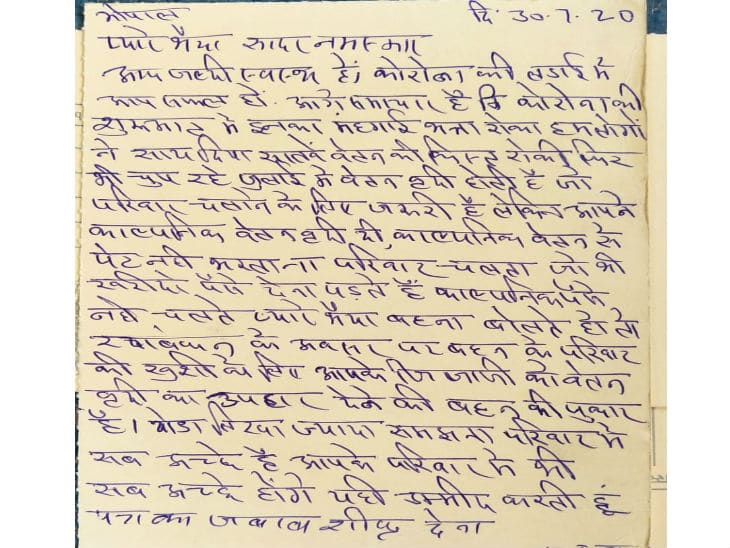 भोपाल दि. 30.7.20
प्यारे भैया सादर नमस्कार
आप जल्दी स्वस्थ हों कोरोना की लडाई में
आप सफल हों. आगे समाचार है कि कोरोना की
शुरूआत में इनका मंहगाई भत्ता रोका हमलोगों
ने साथ दिया सातवें वेतन की किस्त रोकी फिर
भी चुप रहे जुलाई में वेतन वृद्धी होती है जो
परिवार चलाने के लिए जरूरी है लेकिन आपने
काल्पनिक वेतन वृद्धी दी, काल्पनिक वेतन से
पेट नही भरता ना परिवार चलता जो भी
खरीदो पैसे देना पड़ते हैं काल्पनिक पैसे
नही चलते प्यारे भैया बहना बोलते हो तो
रक्षाबंधन के अवसर पर बहन के परिवार
की खुशी के लिए आपके जीजाजी को वेतन
वृद्धी का उपहार देने की बहन की पुकार
है। थोडा लिखा ज्यादा समझना परिवार में
सब अच्छे है आपके परिवार में भी
सब अच्छे होंगे यही उम्मीद करती हूं
पत्र का जबाब शीघ्र देना